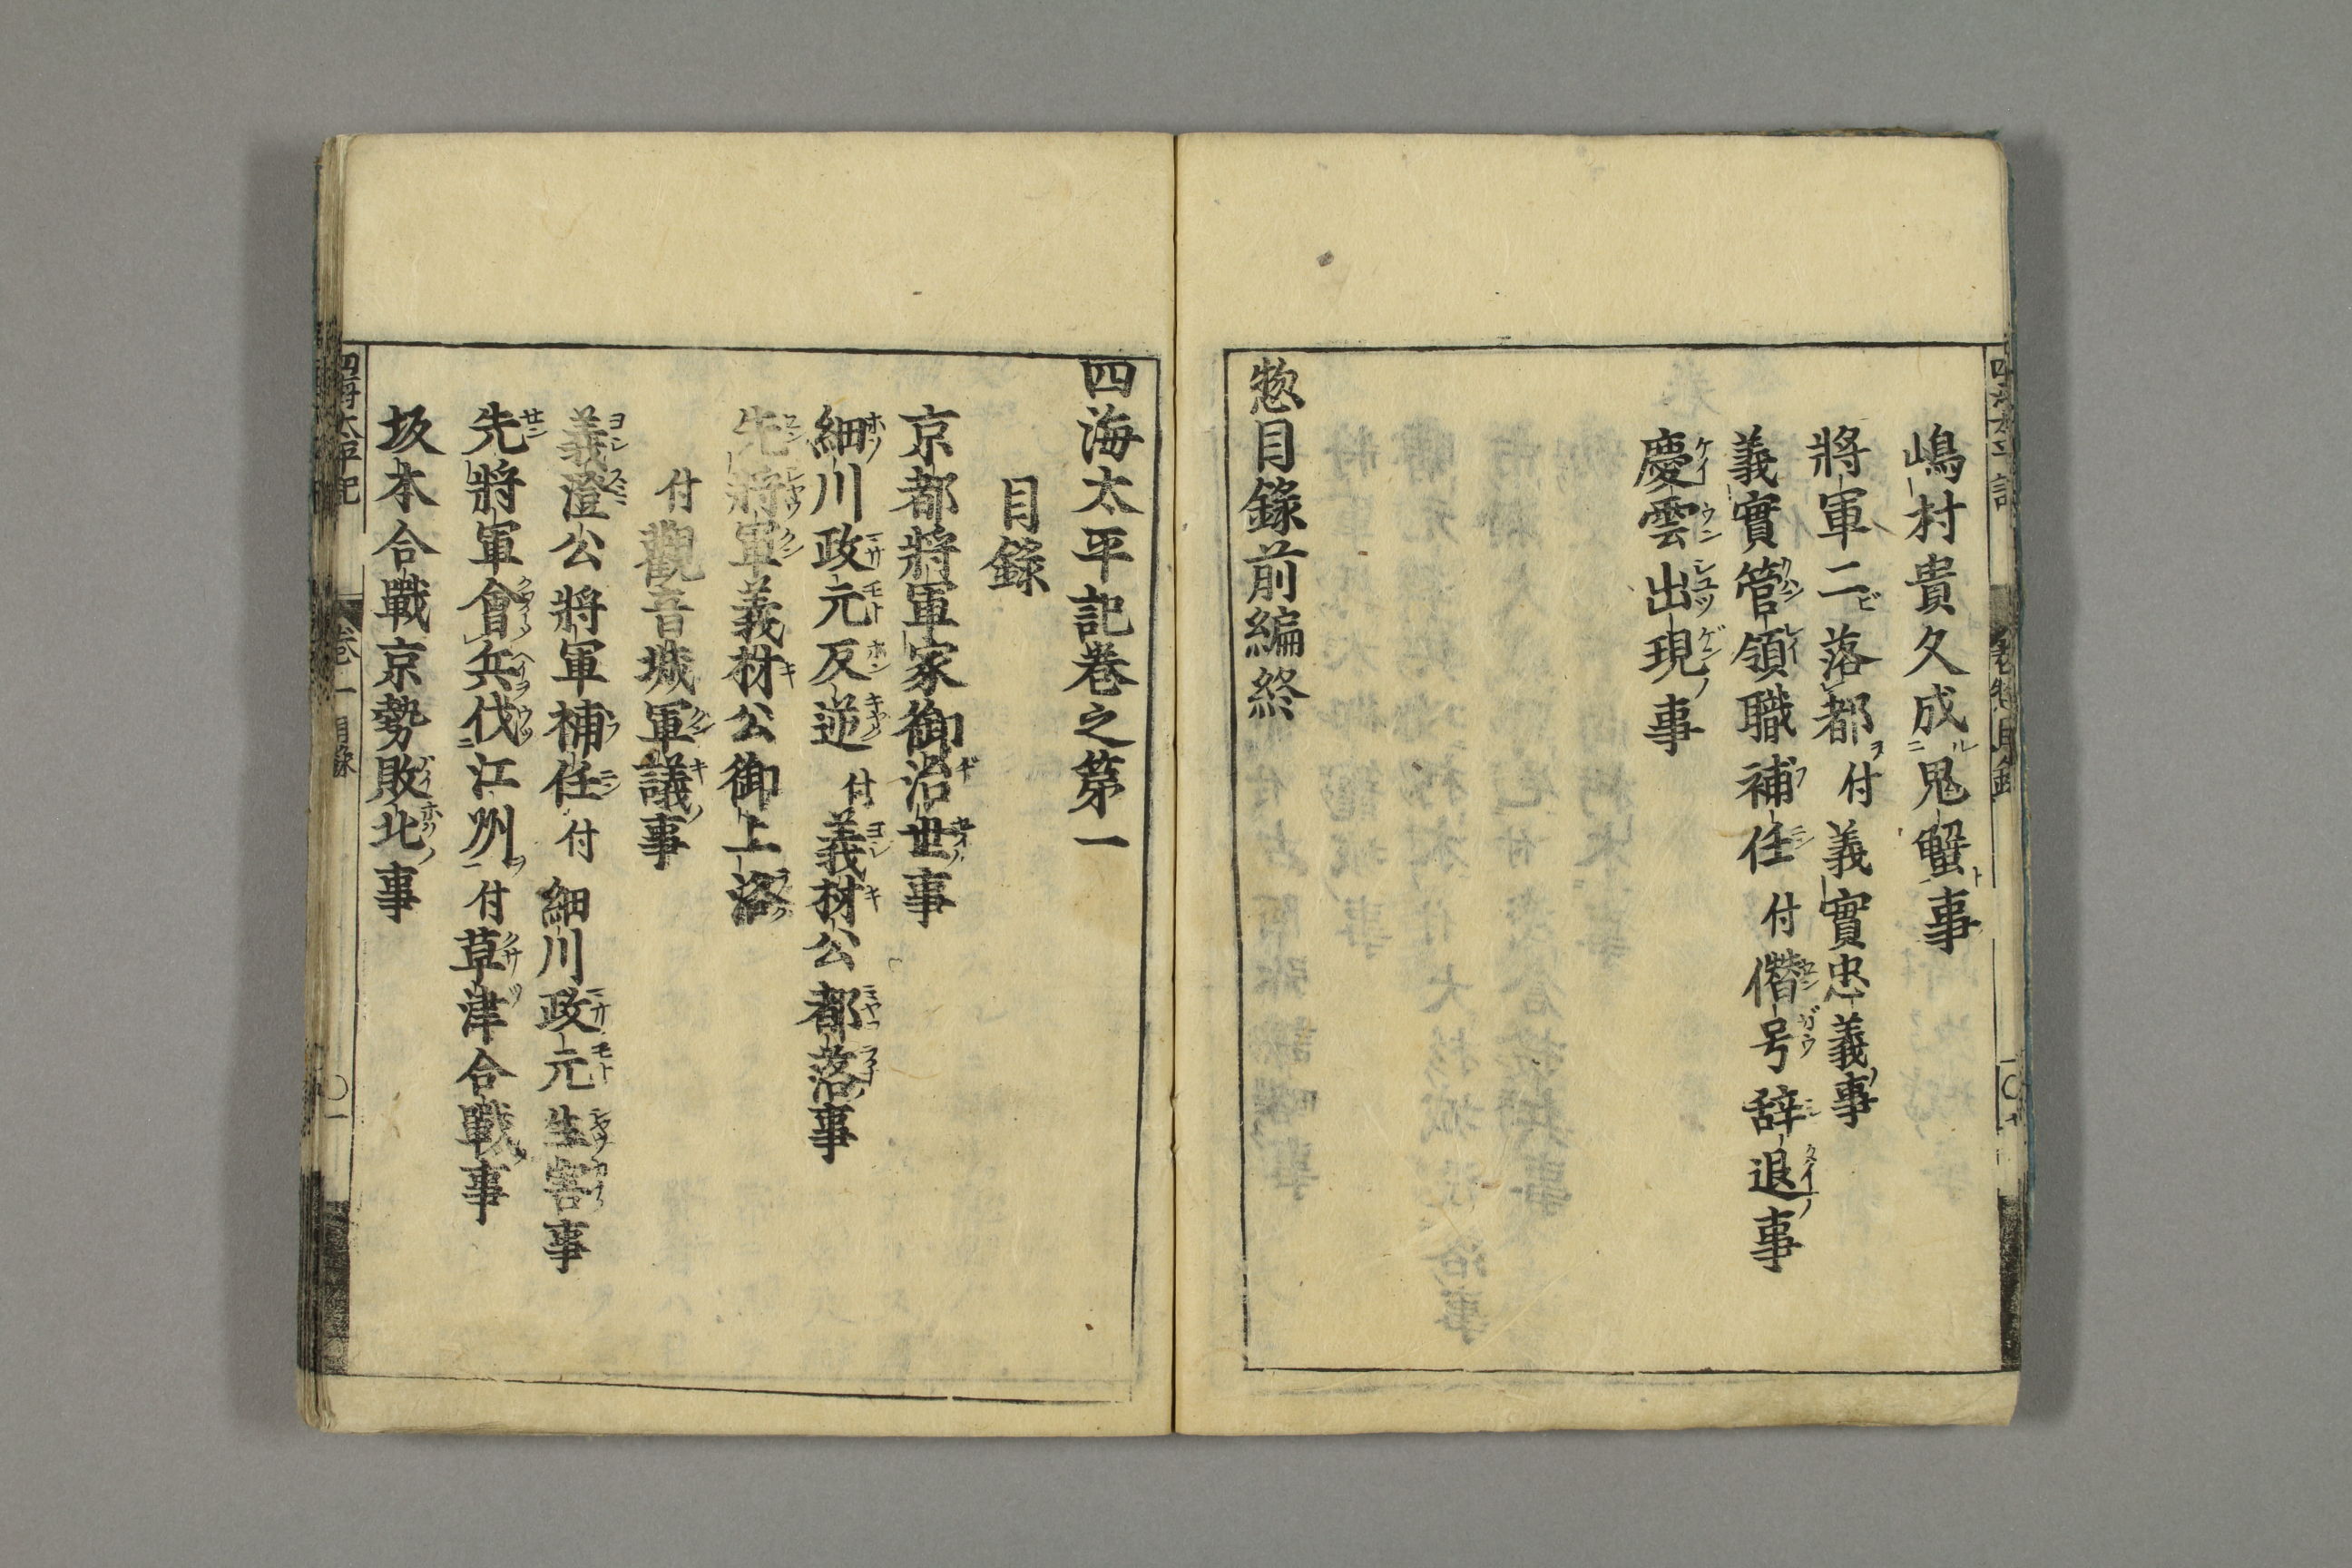 嶋村貴久成鬼蟹事
將軍二落都付義實忠義事
義實管領職補任付僭号辞退事
慶雲出現事
惣目錄前編終
四海太平記卷之第一
目錄
京都將軍家御治世事
細川政元反逆付義材公都落事
先將軍義材公御上洛
付觀音城軍議事
義澄公將軍補任付細川政元生害事
先將軍會兵伐江州付草津合戰事
坂本合戰京勢敗北事